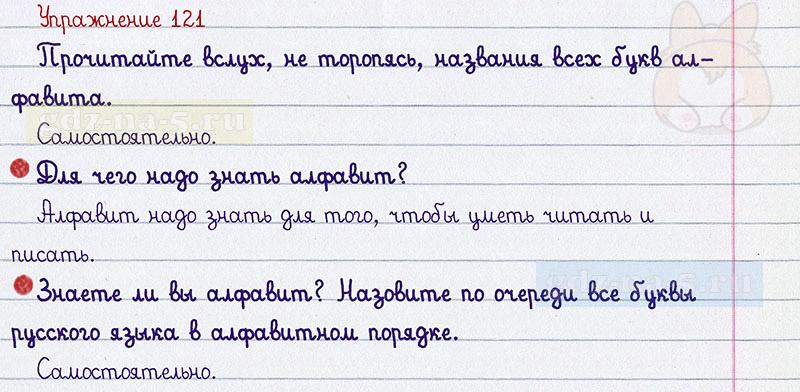 Упражнение 121
Прочитайте вслух, не торопясь, названия всех букв ал-
фавита.
gdz-na-5.ru
Самостоятельно.
Для чего надо знать алфавит?
Алфавит надо знать для того, чтобы уметь читать и
писать.
gdz-na-5.ru
Знаете ли вы алфавит? Назовите по очереди все буквы
русского языка в алфавитном порядке.
Самостоятельно.